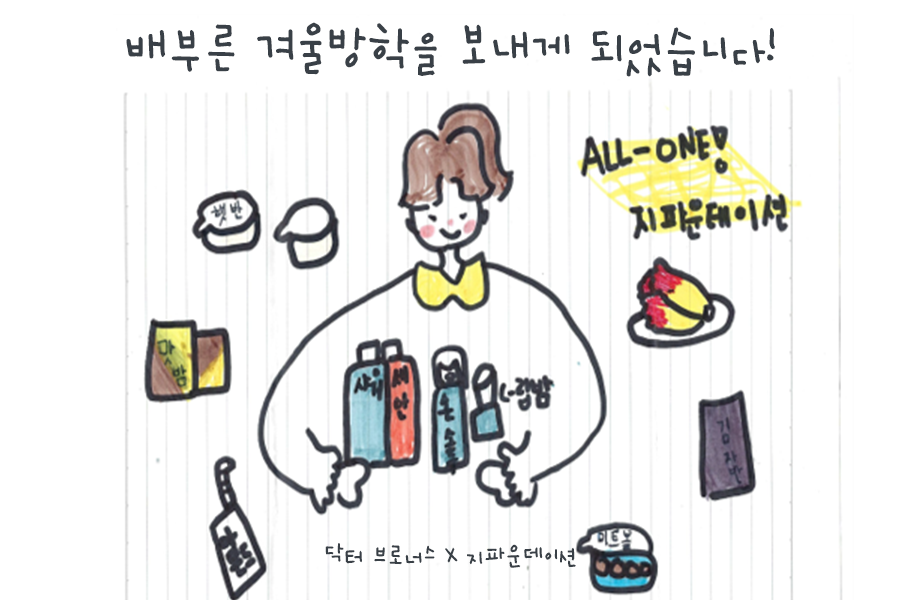 배부른 겨울방학을 보내게 되었습니다!
ALL-ONE!
지파운데이션
햇반
맛밤
샤워
세안
손소독
립밤
김자반
미트볼
닥터 브로너스 X 지파운데이션